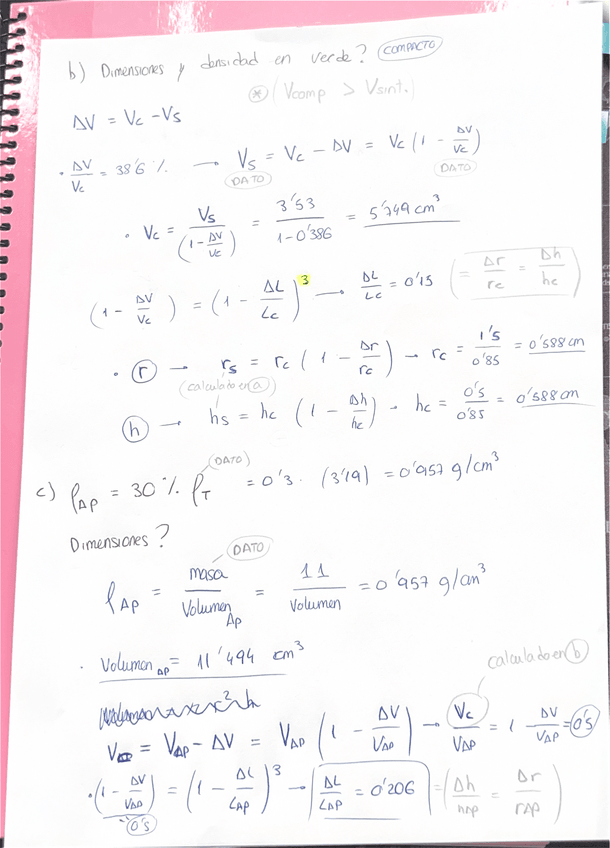 b) Dimensiones y densidad en verde? (COMPACTO)
* (Vcomp > Vsint.)
ΔV = Vc - Vs
· ΔV/Vc = 38'6 % → Vs = Vc - ΔV = Vc (1 - ΔV/Vc)
DATO DATO
· Vc = Vs/(1 - ΔV/Vc) = 3'53/(1-0'386) = 5'749 cm³
(1 - ΔV/Vc) = (1 - ΔL/Lc)³ → ΔL/Lc = 0'15 (= Δr/rc = Δh/hc)
· (r) → rs = rc (1 - Δr/rc) → rc = 1'5/0'85 = 0'588 cm
(calculado en a)
(h) → hs = hc (1 - Δh/hc) → hc = 0'5/0'85 = 0'588 cm
(DATO)
c) ρAP = 30 % ρT = 0'3 · (3'19) = 0'957 g/cm³
Dimensiones?
DATO
ρAP = masa/Volumen AP = 11/Volumen = 0'957 g/cm³
· Volumen AP = 11'494 cm³
calculado en b
= VAP - ΔV = VAP (1 - ΔV/VAP) → Vc/VAP = 1 - ΔV/VAP = 0'5
· (1 - ΔV/VAP) = (1 - ΔL/LAP)³ → ΔL/LAP = 0'206 = (Δh/hAP = Δr/rAP)
0'5